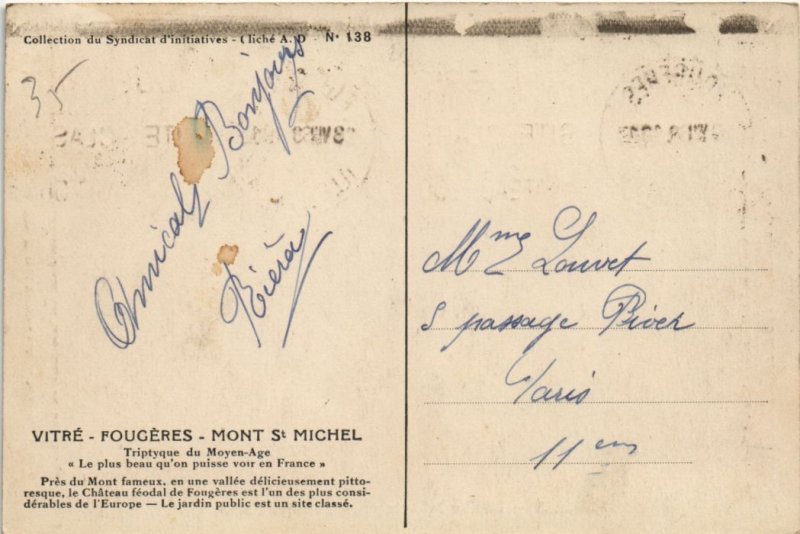 Collection du Syndicat d'initiatives - Cliché A. D N° 138
35
Amicals Bonjours
Rièra
Mme Louvet
5 passage Piver
Paris
11em
VITRÉ - FOUGÈRES - MONT St MICHEL
Triptyque du Moyen-Age
« Le plus beau qu'on puisse voir en France »
Près du Mont fameux, en une vallée délicieusement pitto-
resque, le Château féodal de Fougères est l'un des plus consi-
dérables de l'Europe — Le jardin public est un site classé.